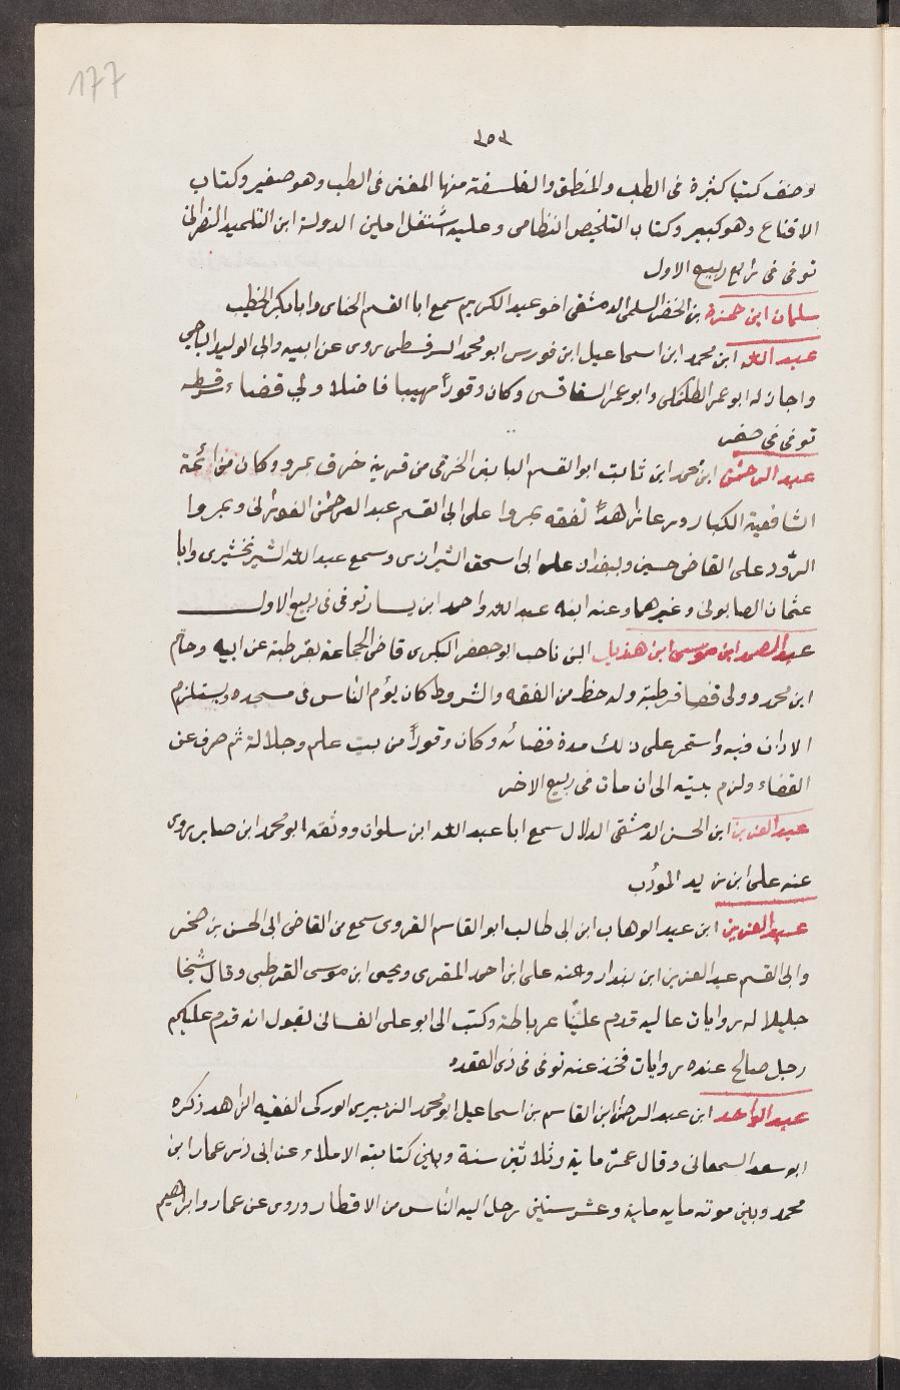 177
٣٥٣
وصنف كتبا كثيرة فى الطب والمنطق والفلسفة منها المغنى فى الطب وهو صغير وكتاب
الاقناع وهو كبير وكتاب التلخيص النظامى وعليه اشتغل امين الدولة ابن التلميذ النصرانى
توفى فى رابع ربيع الاول
سلمان ابن حمزة بن الخضر السلمى الدمشقى اخو عبد الكريم سمع ابا القسم الحناى وابا بكر الخطيب
عبد الله ابن محمد ابن اسماعيل ابن فورس ابو محمد السرقسطى روى عن ابيه وابى الوليد الباجى
واجاز له ابو عمر الطلمنكى وابو عمر السفاقسى وكان وقوراً مهيبا فاضلا ولي قضاء سرقسطه
توفى فى صفر
عبد الرحمن ابن محمد ابن ثابت ابو القسم الثابتى الخرقى من قرية خرق بمرو وكان من ائمة
الشافعية الكبار ورعا زاهدًا تفقه بمروا على ابى القسم عبد الرحمن الفورانى وبمروا
الرّود على القاضى حسين وببغداد على ابى اسحق الشيرازى وسمع عبد الله الشيرنخشيرى وابا
عثمان الصابونى وغيرهما وعنه ابنه عبد الله واحمد ابن يسار توفى فى ربيع الاول
عبد الصمد ابن موسى ابن هذيل ابن تاجيت ابو جعفر البكرى قاضى الجماعة بقرطبة عن ابيه وحاتم
ابن محمد وولى قضا قرطبة وله حظ من الفقه والشروط كان يؤم الناس فى مسجده ويستلزم
الاذان فيه واستمر على ذلك مدة قضائه وكان وقوراً من بيت علم وجلالة ثم صرف عن
القضاء ولزم بيته الى ان مات فى ربيع الاخر
عبد العزيز ابن الحسن الدمشقى الدلال سمع ابا عبد الله ابن سلوان ووثقه ابو محمد ابن صابر روى
عنه على ابن زيد المؤدب
عبد العزيز ابن عبد الوهاب ابن ابى طالب ابو القاسم القروى سمع من القاضى ابى الحسن بن صخر
وابى القسم عبد العزيز ابن بندار وعنه على ابن احمد المقرى ويحيى ابن موسى القرطبى وقال شيخا
جليلا له روايات عاليه قدم علينا غرباطة وكتب الى ابو على الغسانى يقول انه قدم عليكم
رجل صالح عنده روايات فخذ عنه توفى فى ذى القعده
عبد الواحد ابن عبد الرحمن ابن القاسم بن اسماعيل ابو محمد الزبيرى الوركى الفقيه الزاهد ذكره
ابو سعد السمعانى وقال عمّر ماية وثلاثين سنة وبين كتابته الاملاء عن ابى ذر عمار ابن
محمد وبين موته مايه ماية وعشر سنين رحل اليه الناس من الاقطار وروى عن عمار وابراهيم